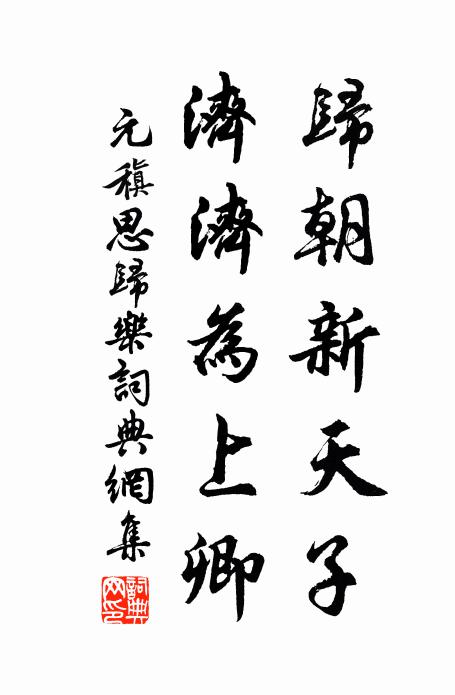 歸朝新天子
濟濟為上卿
元稹思歸樂詞典網集
詞典
网印